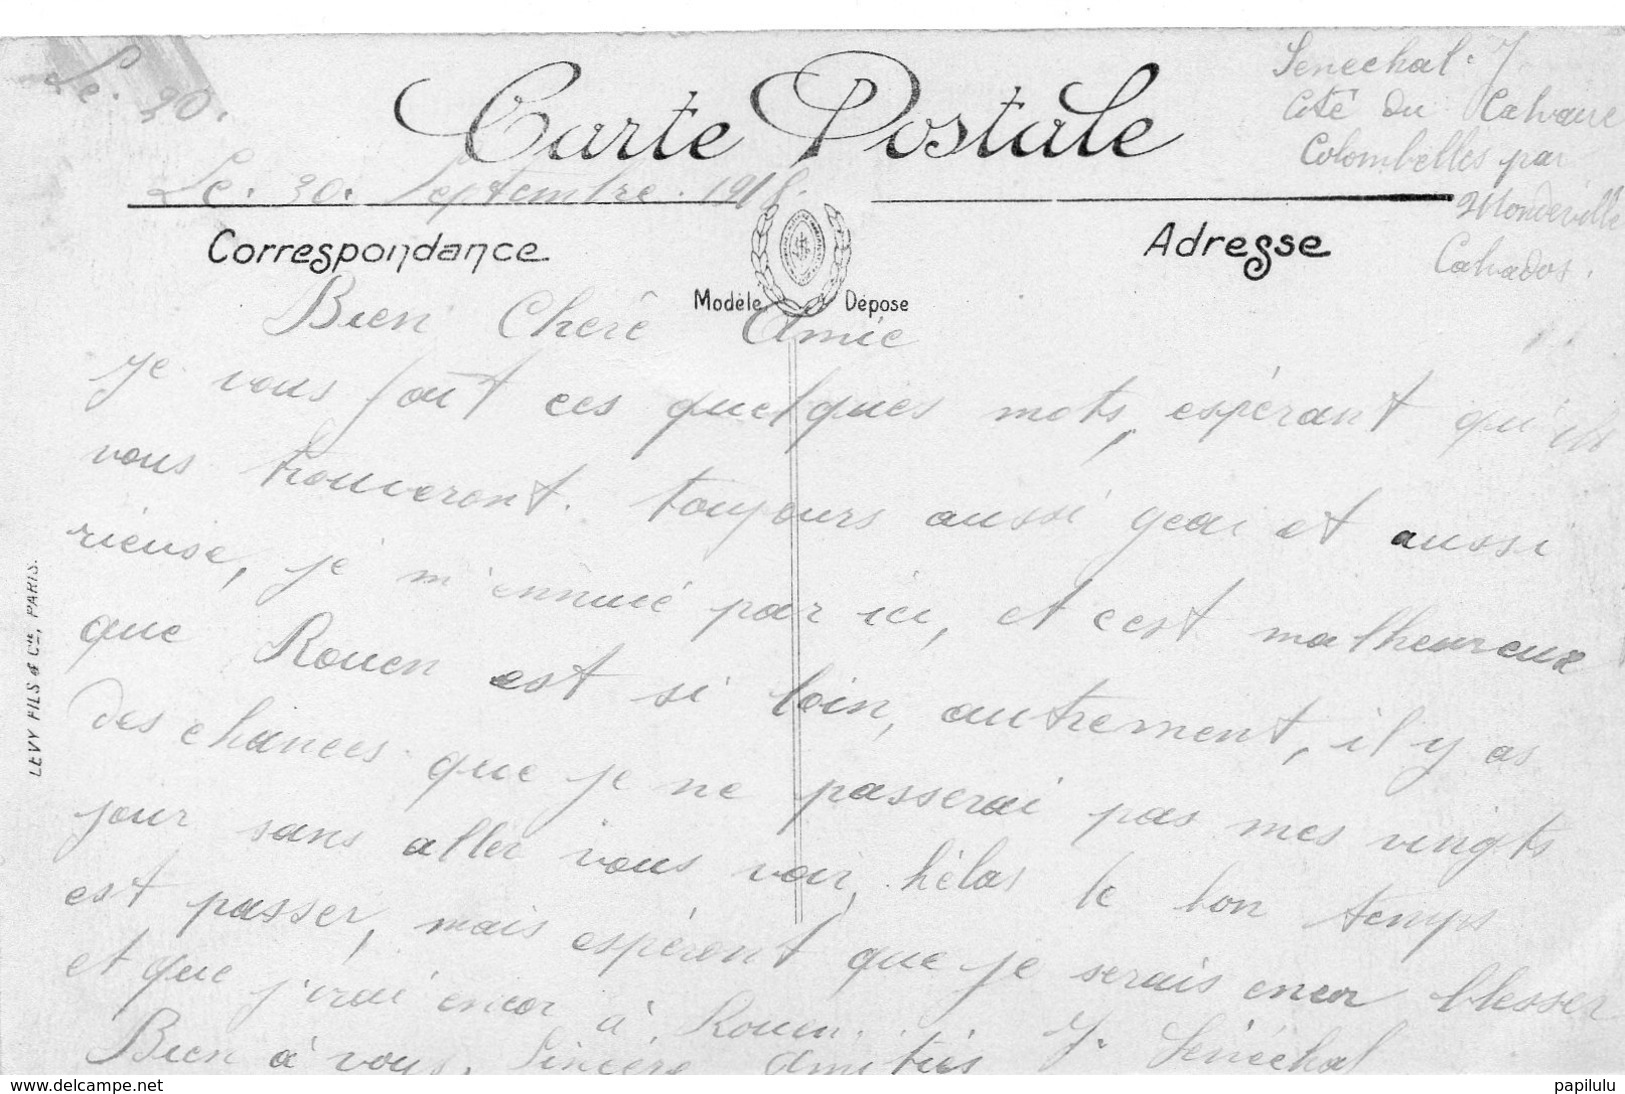 Le. 20.
Carte Postale
Sénéchal. J
Cité du Calvaire
Colombelles par
Mondeville
Calvados.
Le. 30. Septembre. 1918.
Correspondance
Adresse
Modèle Déposé
Bien Cherê Amie
Je vous fait ces quelques mots, espérant qu'ils
vous trouveront. toujours aussi geai et aussi
rieuse, je m'ennuié par ici, et c'est malheureux
que Rouen est si loin, autrement, il y as
des chances que je ne passerai pas mes vingts
jour sans aller vous voir, hélas le bon temps
est passer, mais espéront que je serais encor blesser
et que j'irai encor à Rouen.
Bien à vous, Sincère Amitiés J. Sénéchal
LEVY FILS & Cie, PARIS.
www.delcampe.net
papilulu